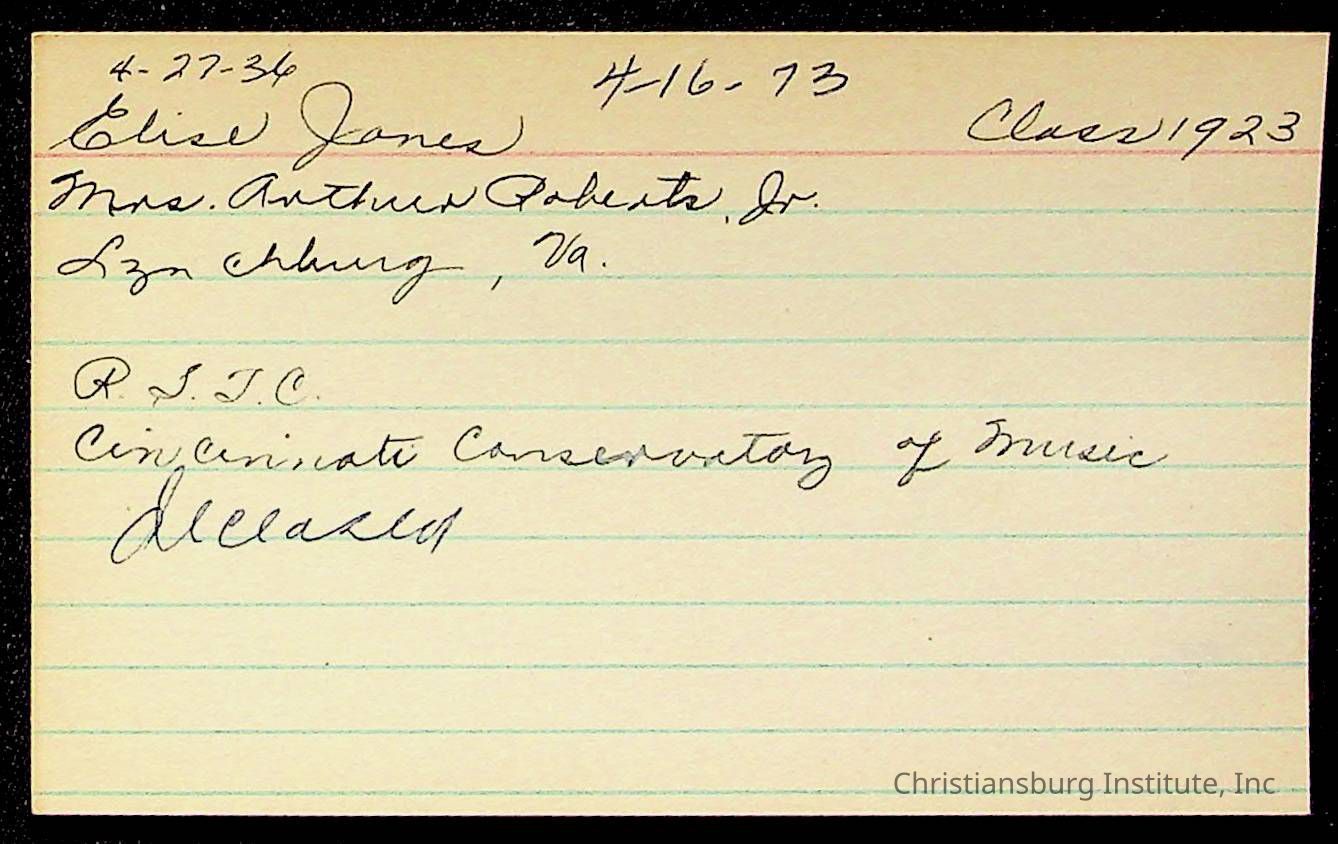 4-27-36 4-16-73
Elise Jones Class 1923
Mrs. Arthur Roberts, Jr.
Lynchburg, Va.
R. S. T. C.
Cincinnati Conservatory of Music
Deceased
Christiansburg Institute, Inc